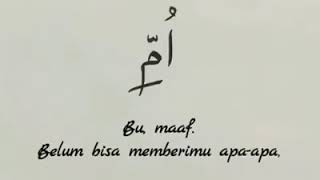 أُمّ
Bu, maaf.
Belum bisa memberimu apa-apa,